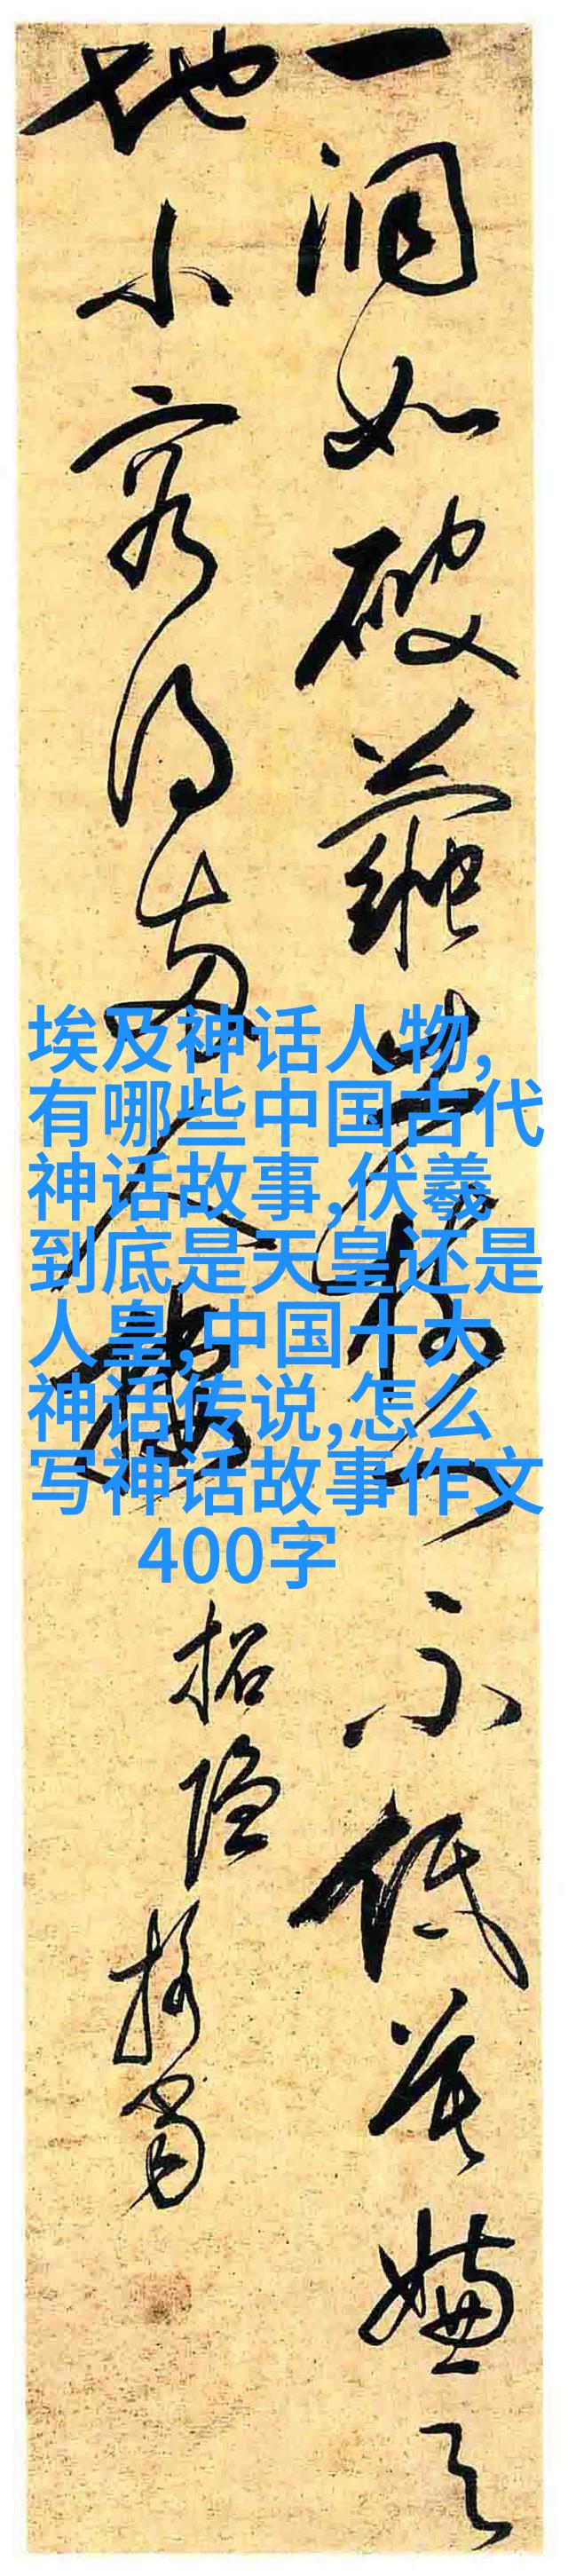 一洞如破不低莫嫌天
地小容得两人
招隐
埃及神话人物,
有哪些中国古代
神话故事,伏羲
到底是天皇还是
人皇,中国十大
神话传说,怎么
写神话故事作文
400字